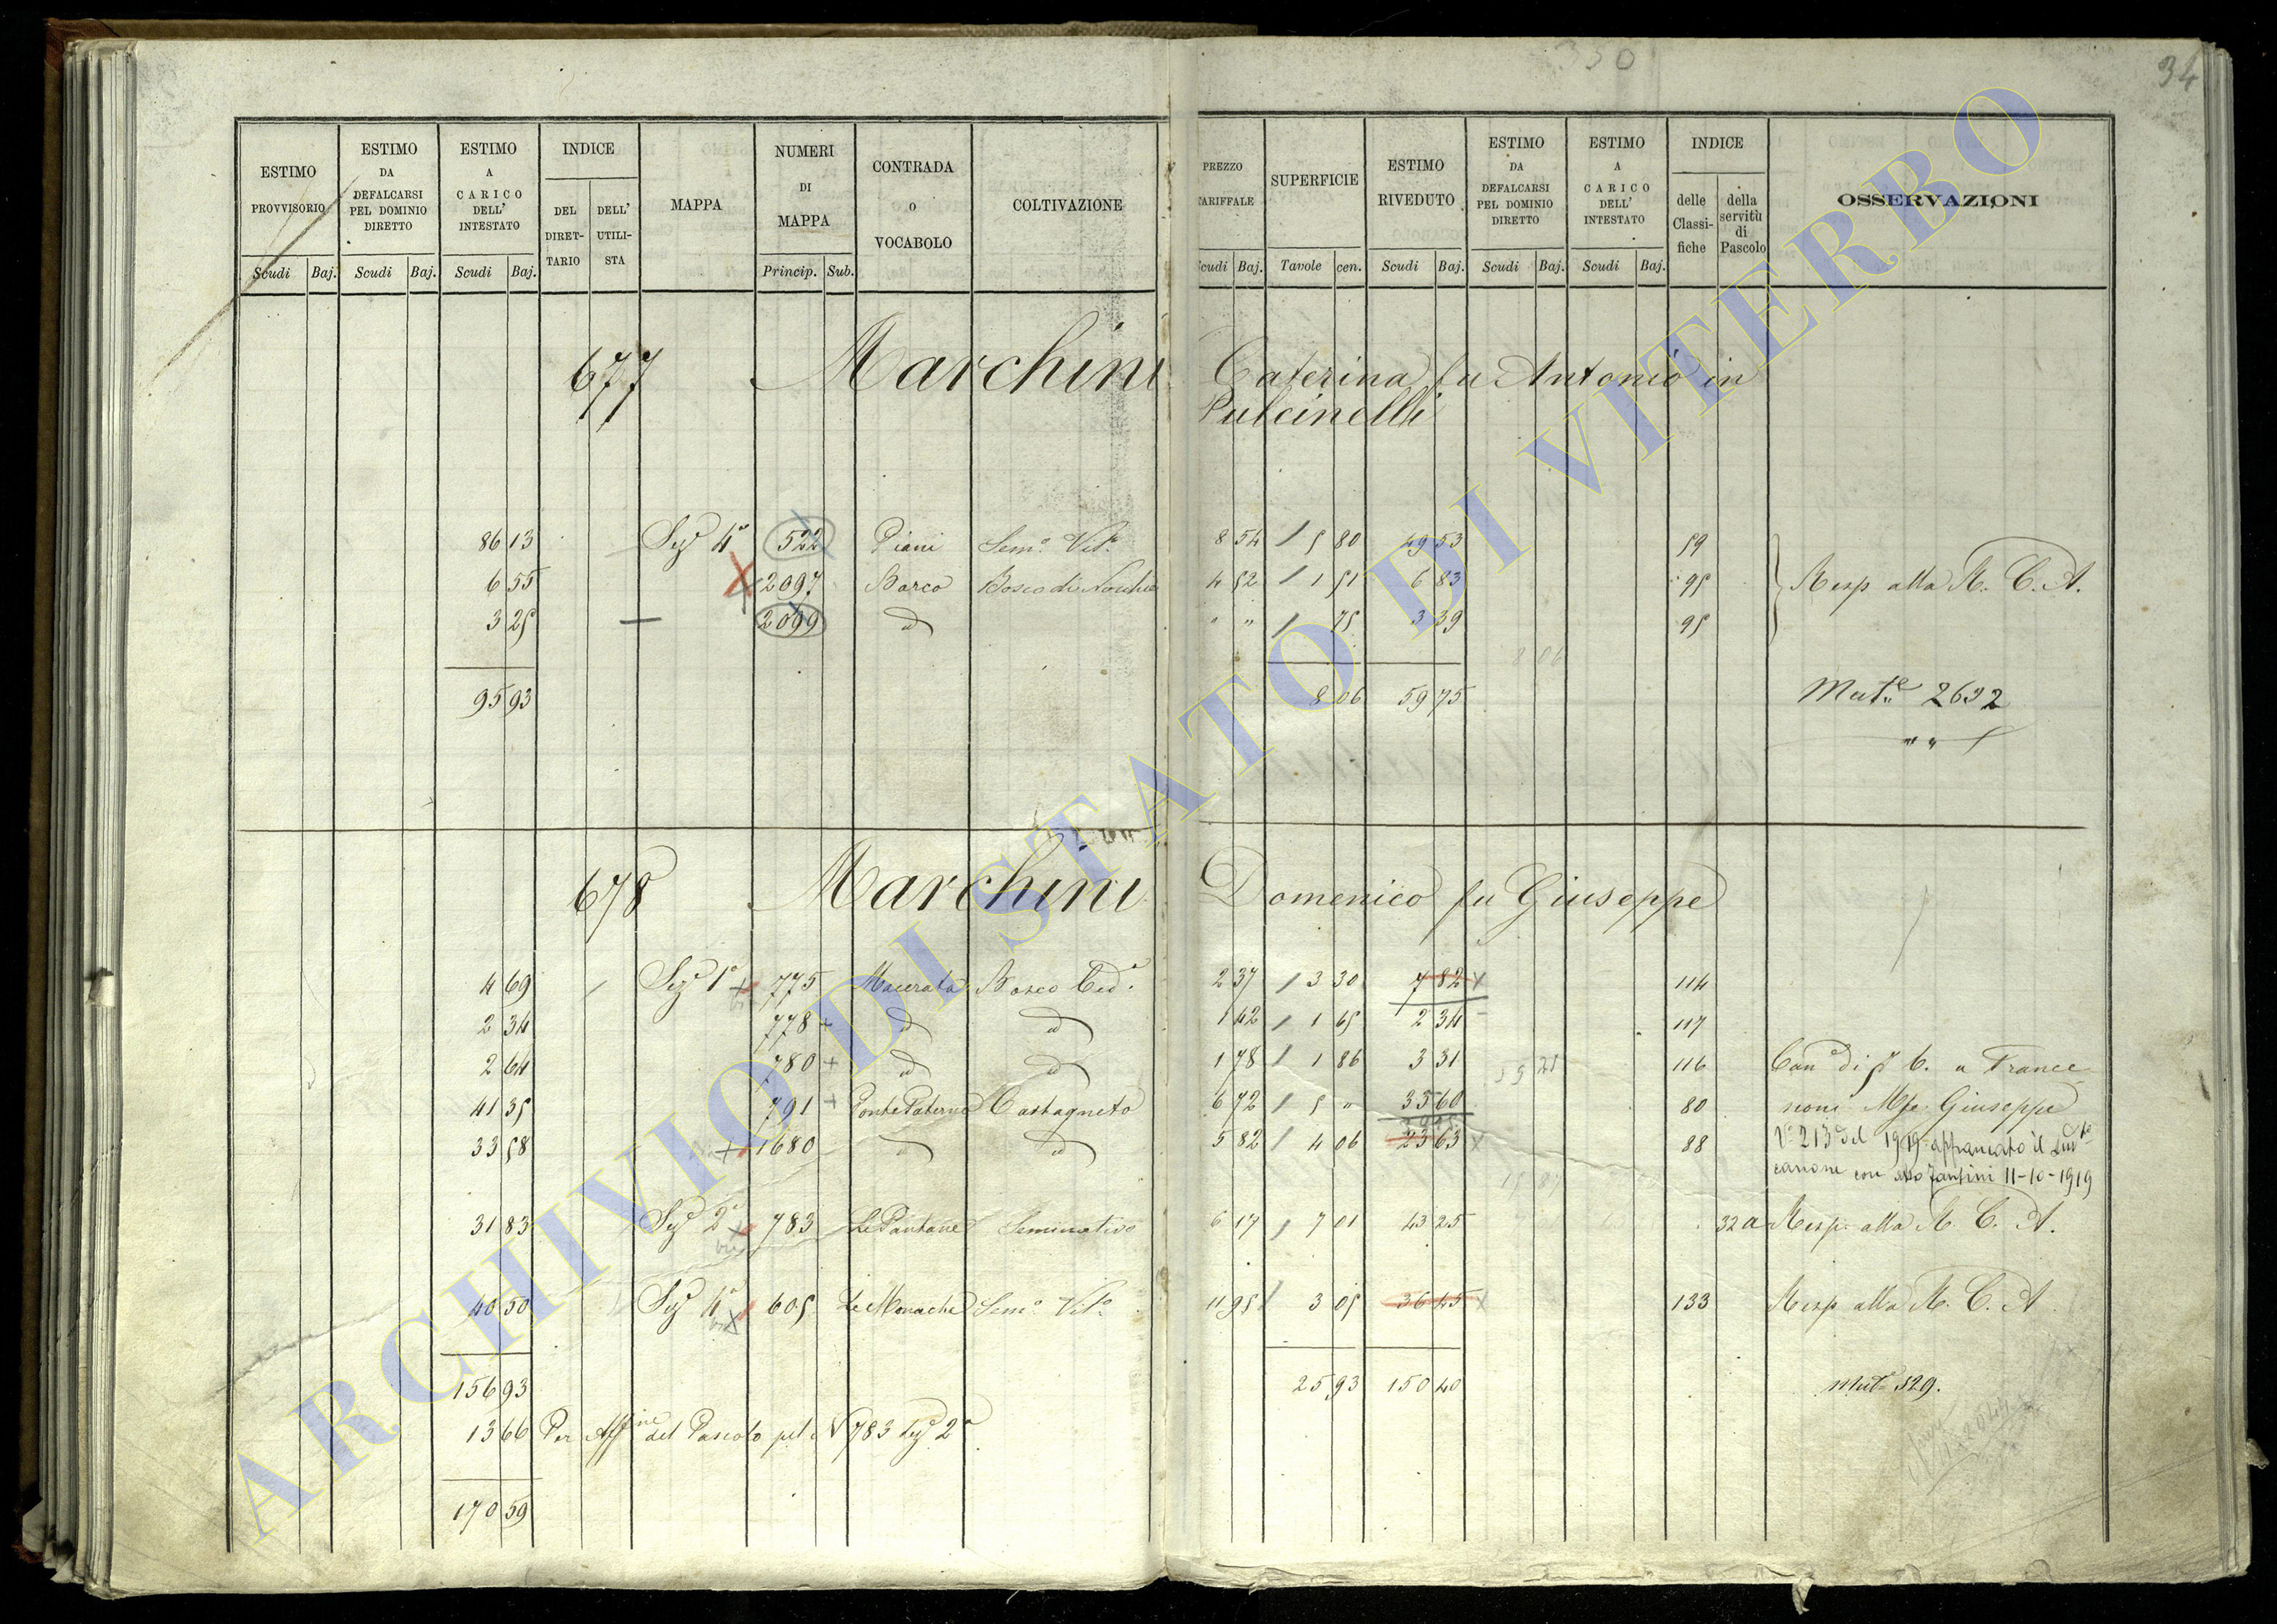 34
ESTIMO PROVVISORIO | ESTIMO DA DEFALCARSI PEL DOMINIO DIRETTO | ESTIMO A CARICO DELL' INTESTATO | INDICE DEL DIRETTARIO | DELL' UTILISTA | MAPPA | NUMERI DI MAPPA | CONTRADA o VOCABOLO | COLTIVAZIONE | PREZZO TARIFFALE | SUPERFICIE | ESTIMO RIVEDUTO | ESTIMO DA DEFALCARSI PEL DOMINIO DIRETTO | ESTIMO A CARICO DELL' INTESTATO | INDICE delle Classifiche | della servitù di Pascolo | OSSERVAZIONI
Scudi Baj. Scudi Baj. Scudi Baj. Princip. Sub. Scudi Baj. Tavole cen. Scudi Baj. Scudi Baj. Scudi Baj.
677 Marchini Caterina fu Antonio in
Pulcinelli
86 13 Sez.e 4a 522 Piani Sem.o Vit.o 8 54 5 80 49 53 59
6 55 2097 Barco Bosco di Nocchie 4 52 1 51 6 83 95 Resp alla R. C. A.
3 25 2099 id " " 75 3 39 95
95 93 8 06 59 75 Mut.e 2632
678 Marchini Domenico fu Giuseppe
4 69 Sez.e 1a 775 Macerata Bosco Ced.o 2 37 3 30 7 82 114
2 34 778 id id 1 42 1 65 2 34 117
2 64 780 id id 1 78 1 86 3 31 116 Can.e di
41 35 791 Ponte Paterno Castagneto 6 72 5 " 33 60 80 Giuseppe
33 58 1680 id id 5 82 4 06 23 63 88 V. 213 del 1919 affrancato il
canone con atto 11-10-1919
31 83 Sez.e 2a 783 Le Pantane Seminativo 6 17 7 01 43 25 32a Resp. alla R. C. A.
40 50 Sez.e 4a 605 Le Monache Sem.o Vit.o 11 95 3 05 36 45 133 Resp alla R. C. A.
156 93 25 93 150 40 Mut.e 529.
13 66 Per Aff.ine del Pascolo pel N 783 Sez.e 2a
170 59
ARCHIVIO DI STATO DI VITERBO